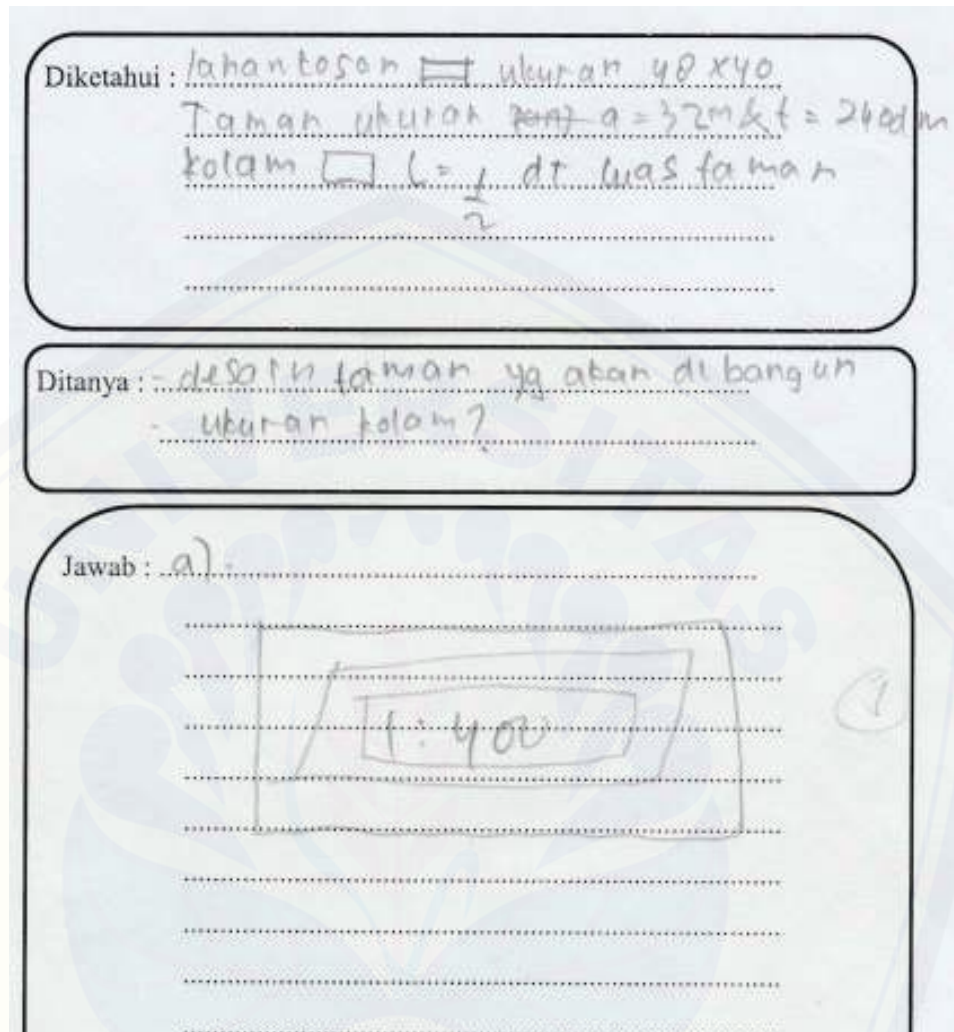 Diketahui : lahan kosong ▭ ukuran 48 x 40
Taman ukuran a = 32m & t = 240dm
kolam ▭ L = 1/2 dr luas taman
Ditanya : - desain taman yg akan di bangun
- ukuran kolam?
Jawab : a) .
1 : 400
1
UNIVERSITAS